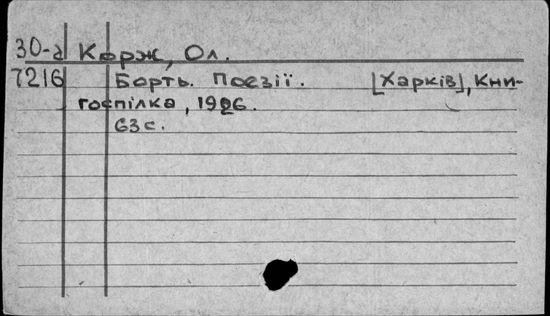 30-а Корж, Ол.
7216 Борть. Поезії. [Харків], Кни-
госпілка, 1926.
63 с.